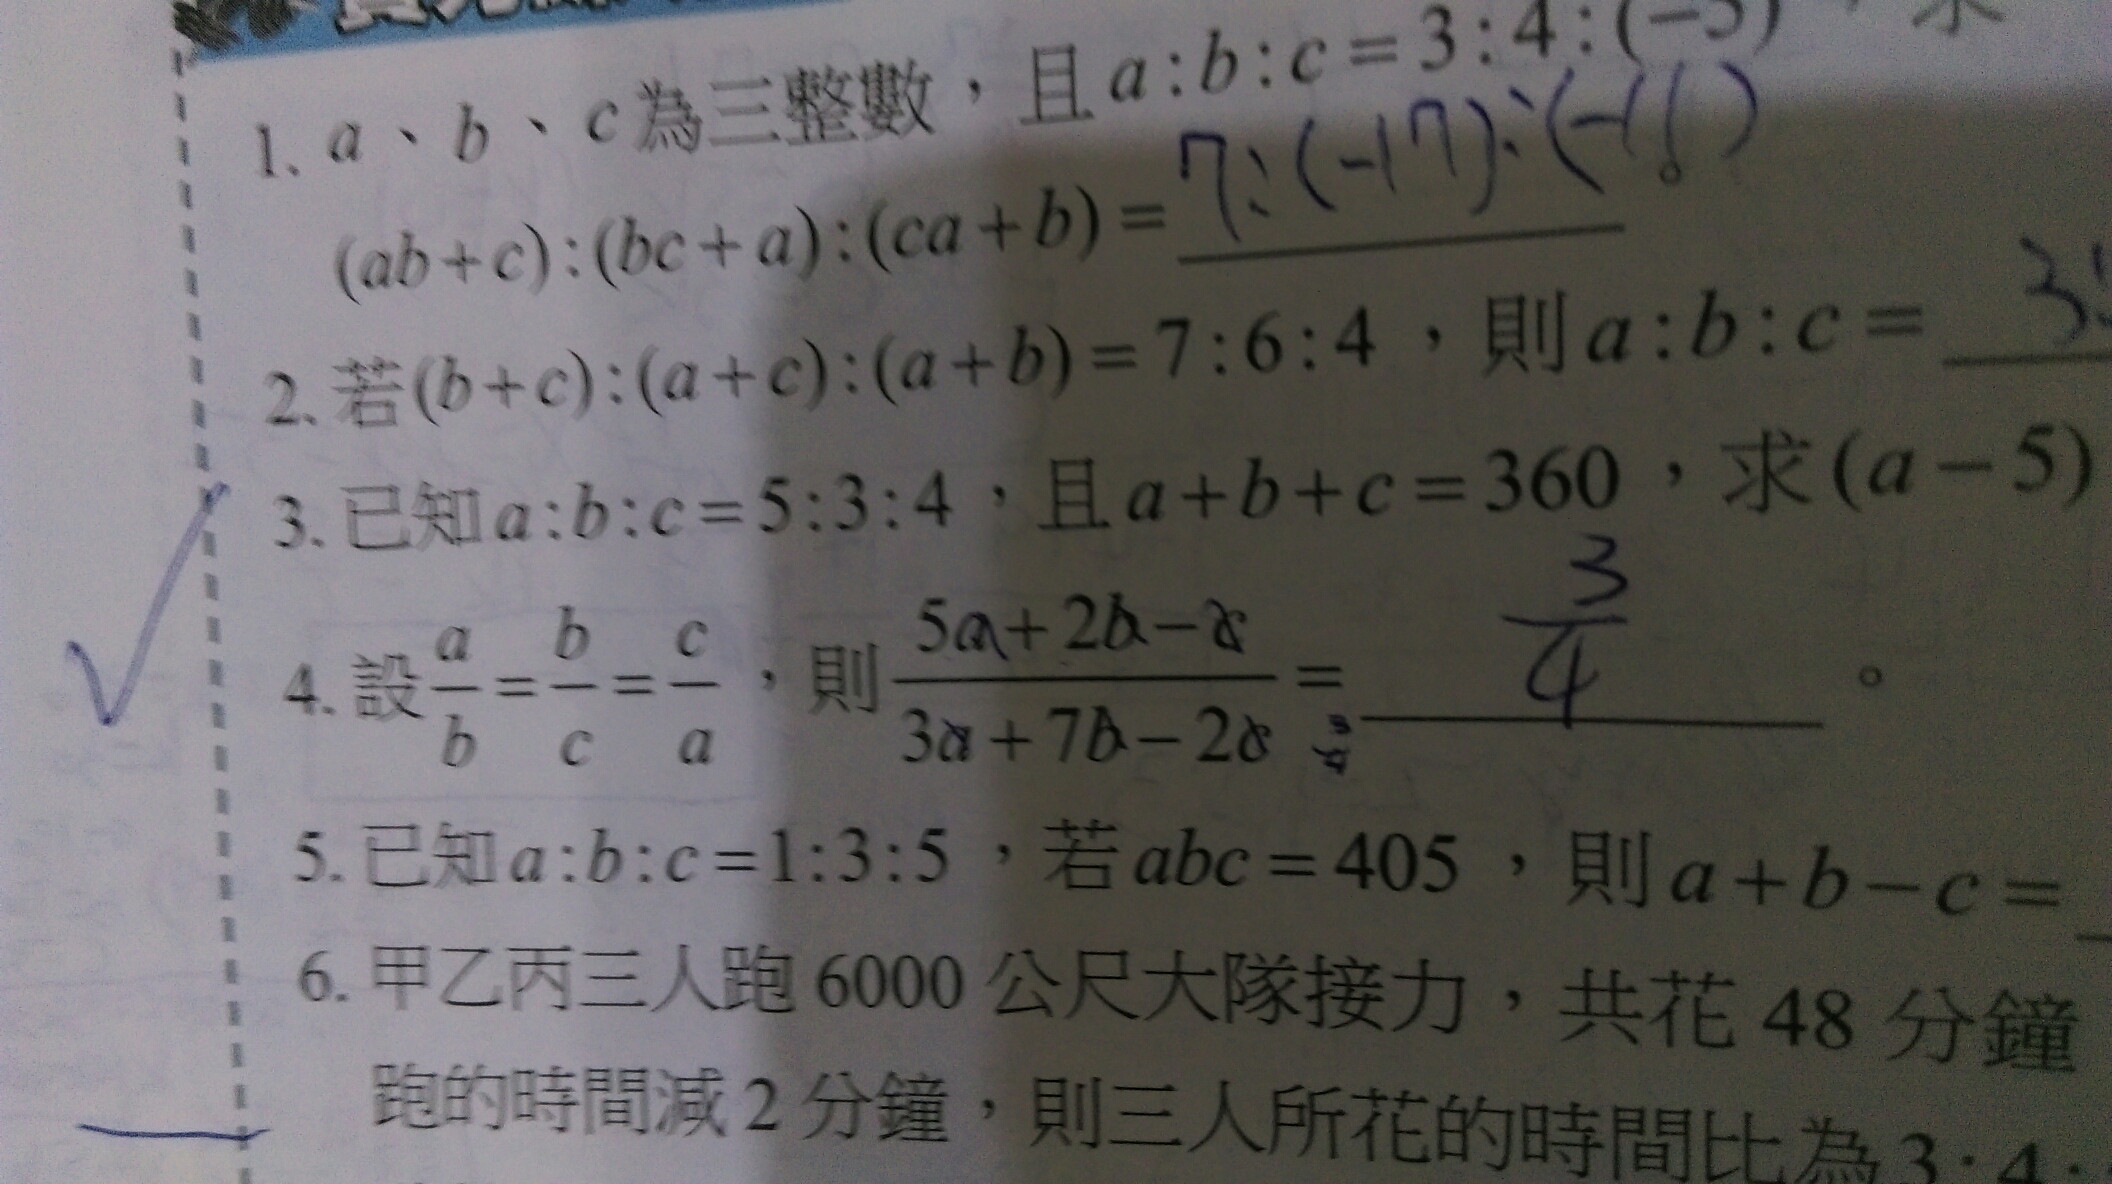 1. a、b、c為三整數，且a:b:c=3:4:(-5)，求
7:(-17):(-11)
(ab+c):(bc+a):(ca+b)=
2. 若(b+c):(a+c):(a+b)=7:6:4，則a:b:c=
3. 已知a:b:c=5:3:4，且a+b+c=360，求(a-5)
4. 設a/b=b/c=c/a，則(5a+2b-c)/(3a+7b-2c)= 3/4 。
3/4
5. 已知a:b:c=1:3:5，若abc=405，則a+b-c=
6. 甲乙丙三人跑6000公尺大隊接力，共花48分鐘
跑的時間減2分鐘，則三人所花的時間比為3:4: